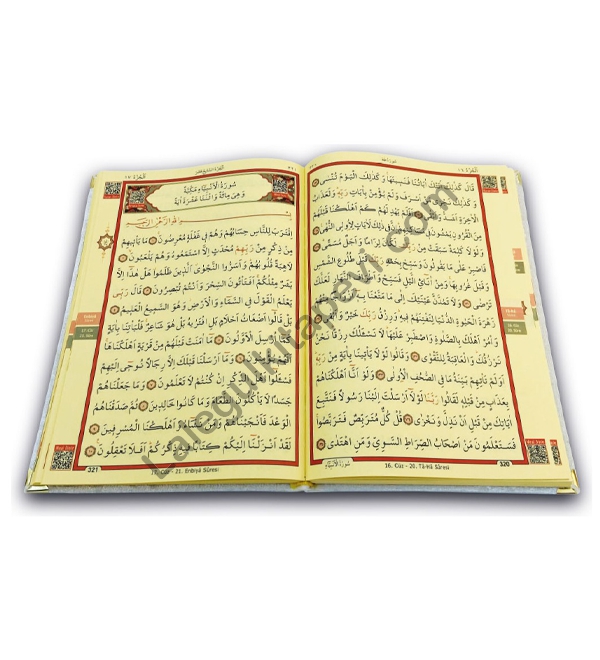 الجزء ١٦
سورة طه
قَالَ كَذٰلِكَ اَتَتْكَ اٰيَاتُنَا فَنَسِيتَهَا وَكَذٰلِكَ الْيَوْمَ تُنْسٰى
وَكَذٰلِكَ نَجْزِي مَنْ اَسْرَفَ وَلَمْ يُؤْمِنْ بِاٰيَاتِ رَبِّهِ وَلَعَذَابُ
الْاٰخِرَةِ اَشَدُّ وَاَبْقٰى اَفَلَمْ يَهْدِ لَهُمْ كَمْ اَهْلَكْنَا قَبْلَهُمْ
مِنَ الْقُرُونِ يَمْشُونَ فِي مَسَاكِنِهِمْ اِنَّ فِي ذٰلِكَ لَاٰيَاتٍ لِاُولِي النُّهٰى
وَلَوْلَا كَلِمَةٌ سَبَقَتْ مِنْ رَبِّكَ لَكَانَ لِزَامًا وَاَجَلٌ مُسَمًّى
فَاصْبِرْ عَلٰى مَا يَقُولُونَ وَسَبِّحْ بِحَمْدِ رَبِّكَ قَبْلَ طُلُوعِ الشَّمْسِ
وَقَبْلَ غُرُوبِهَا وَمِنْ اٰنَآئِ الَّيْلِ فَسَبِّحْ وَاَطْرَافَ النَّهَارِ لَعَلَّكَ
تَرْضٰى وَلَا تَمُدَّنَّ عَيْنَيْكَ اِلٰى مَا مَتَّعْنَا بِهِ اَزْوَاجًا مِنْهُمْ
زَهْرَةَ الْحَيٰوةِ الدُّنْيَا لِنَفْتِنَهُمْ فِيهِ وَرِزْقُ رَبِّكَ خَيْرٌ وَاَبْقٰى
وَأْمُرْ اَهْلَكَ بِالصَّلٰوةِ وَاصْطَبِرْ عَلَيْهَا لَا نَسْـَٔلُكَ رِزْقًا نَحْنُ
نَرْزُقُكَ وَالْعَاقِبَةُ لِلتَّقْوٰى وَقَالُوا لَوْلَا يَأْتِينَا بِاٰيَةٍ مِنْ رَبِّهِ
اَوَلَمْ تَأْتِهِمْ بَيِّنَةُ مَا فِي الصُّحُفِ الْاُولٰى وَلَوْ اَنَّا اَهْلَكْنَاهُمْ
بِعَذَابٍ مِنْ قَبْلِهِ لَقَالُوا رَبَّنَا لَوْلَا اَرْسَلْتَ اِلَيْنَا رَسُولًا فَنَتَّبِعَ
اٰيَاتِكَ مِنْ قَبْلِ اَنْ نَذِلَّ وَنَخْزٰى قُلْ كُلٌّ مُتَرَبِّصٌ فَتَرَبَّصُوا
فَسَتَعْلَمُونَ مَنْ اَصْحَابُ الصِّرَاطِ السَّوِيِّ وَمَنِ اهْتَدٰى
سورة الانبياء
16. Cüz - 20. Tâ-Hâ Sûresi
320
الجزء ١٧
سُورَةُ الْاَنْبِيَاءِ مَكِّيَّةٌ
وَهِيَ مِائَةٌ وَاثْنَتَا عَشْرَةَ اٰيَةً
بسم الله الرحمن الرحيم
اِقْتَرَبَ لِلنَّاسِ حِسَابُهُمْ وَهُمْ فِي غَفْلَةٍ مُعْرِضُونَ مَا يَأْتِيهِمْ
مِنْ ذِكْرٍ مِنْ رَبِّهِمْ مُحْدَثٍ اِلَّا اسْتَمَعُوهُ وَهُمْ يَلْعَبُونَ
لَاهِيَةً قُلُوبُهُمْ وَاَسَرُّوا النَّجْوَى الَّذِينَ ظَلَمُوا هَلْ هٰذَا اِلَّا
بَشَرٌ مِثْلُكُمْ اَفَتَأْتُونَ السِّحْرَ وَاَنْتُمْ تُبْصِرُونَ قَالَ رَبِّي
يَعْلَمُ الْقَوْلَ فِي السَّمَاءِ وَالْاَرْضِ وَهُوَ السَّمِيعُ الْعَلِيمُ
بَلْ قَالُوا اَضْغَاثُ اَحْلَامٍ بَلِ افْتَرٰيهُ بَلْ هُوَ شَاعِرٌ فَلْيَأْتِنَا بِاٰيَةٍ
كَمَا اُرْسِلَ الْاَوَّلُونَ مَا اٰمَنَتْ قَبْلَهُمْ مِنْ قَرْيَةٍ اَهْلَكْنَاهَا
اَفَهُمْ يُؤْمِنُونَ وَمَا اَرْسَلْنَا قَبْلَكَ اِلَّا رِجَالًا نُوحِي اِلَيْهِمْ
فَسْـَٔلُوا اَهْلَ الذِّكْرِ اِنْ كُنْتُمْ لَا تَعْلَمُونَ وَمَا جَعَلْنَاهُمْ
جَسَدًا لَا يَأْكُلُونَ الطَّعَامَ وَمَا كَانُوا خَالِدِينَ ثُمَّ صَدَقْنَاهُمُ
الْوَعْدَ فَاَنْجَيْنَاهُمْ وَمَنْ نَشَاءُ وَاَهْلَكْنَا الْمُسْرِفِينَ
لَقَدْ اَنْزَلْنَا اِلَيْكُمْ كِتَابًا فِيهِ ذِكْرُكُمْ اَفَلَا تَعْقِلُونَ
321
17. Cüz - 21. Enbiyâ Sûresi
Lalegulkitapevi.com